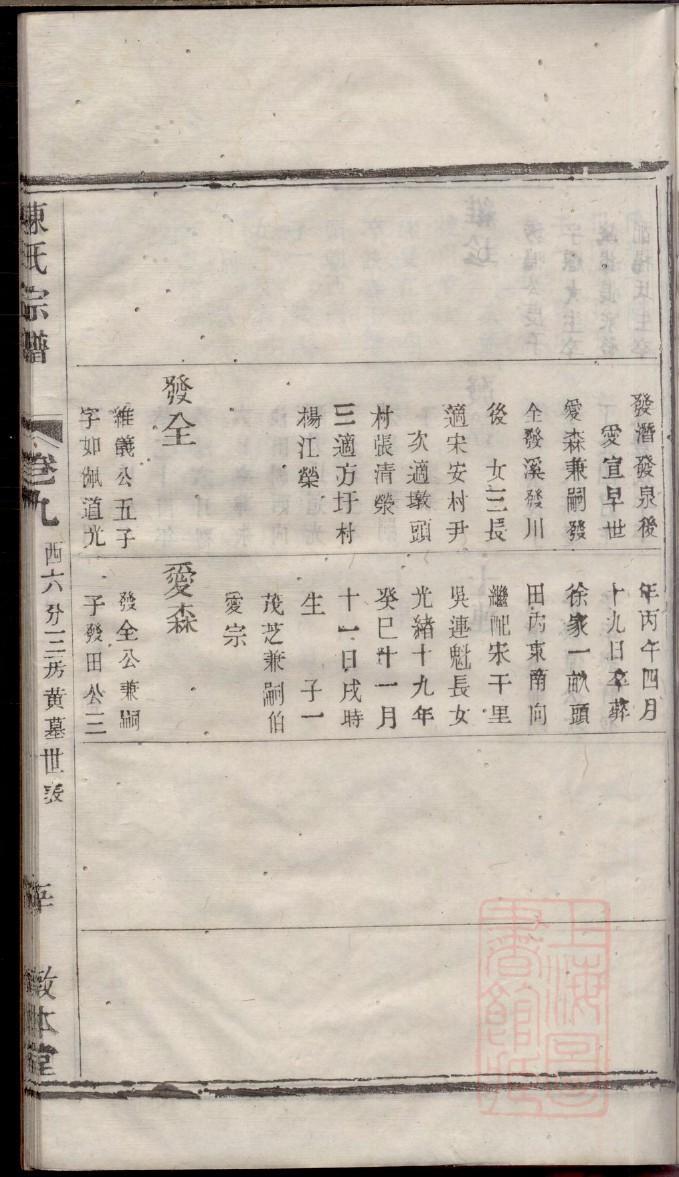 發潛發泉後
愛宜早世
愛森兼嗣發
全發溪發川
後 女三長
適宋安村尹
次適墩頭
村張清榮
三適方圩村
楊江榮
發全
維義公五子
字如佩道光
年丙午四月
十九日卒葬
徐家一畝頭
田內東南向
繼配宋干里
吳連魁長女
光緒十九年
癸巳十一月
十一日戌時
生 子一
茂芝兼嗣伯
愛宗
愛森
發全公兼嗣
子發田公三
陳氏宗譜
卷九
西六分三房黃墓世表
敦本堂
上海圖書館藏